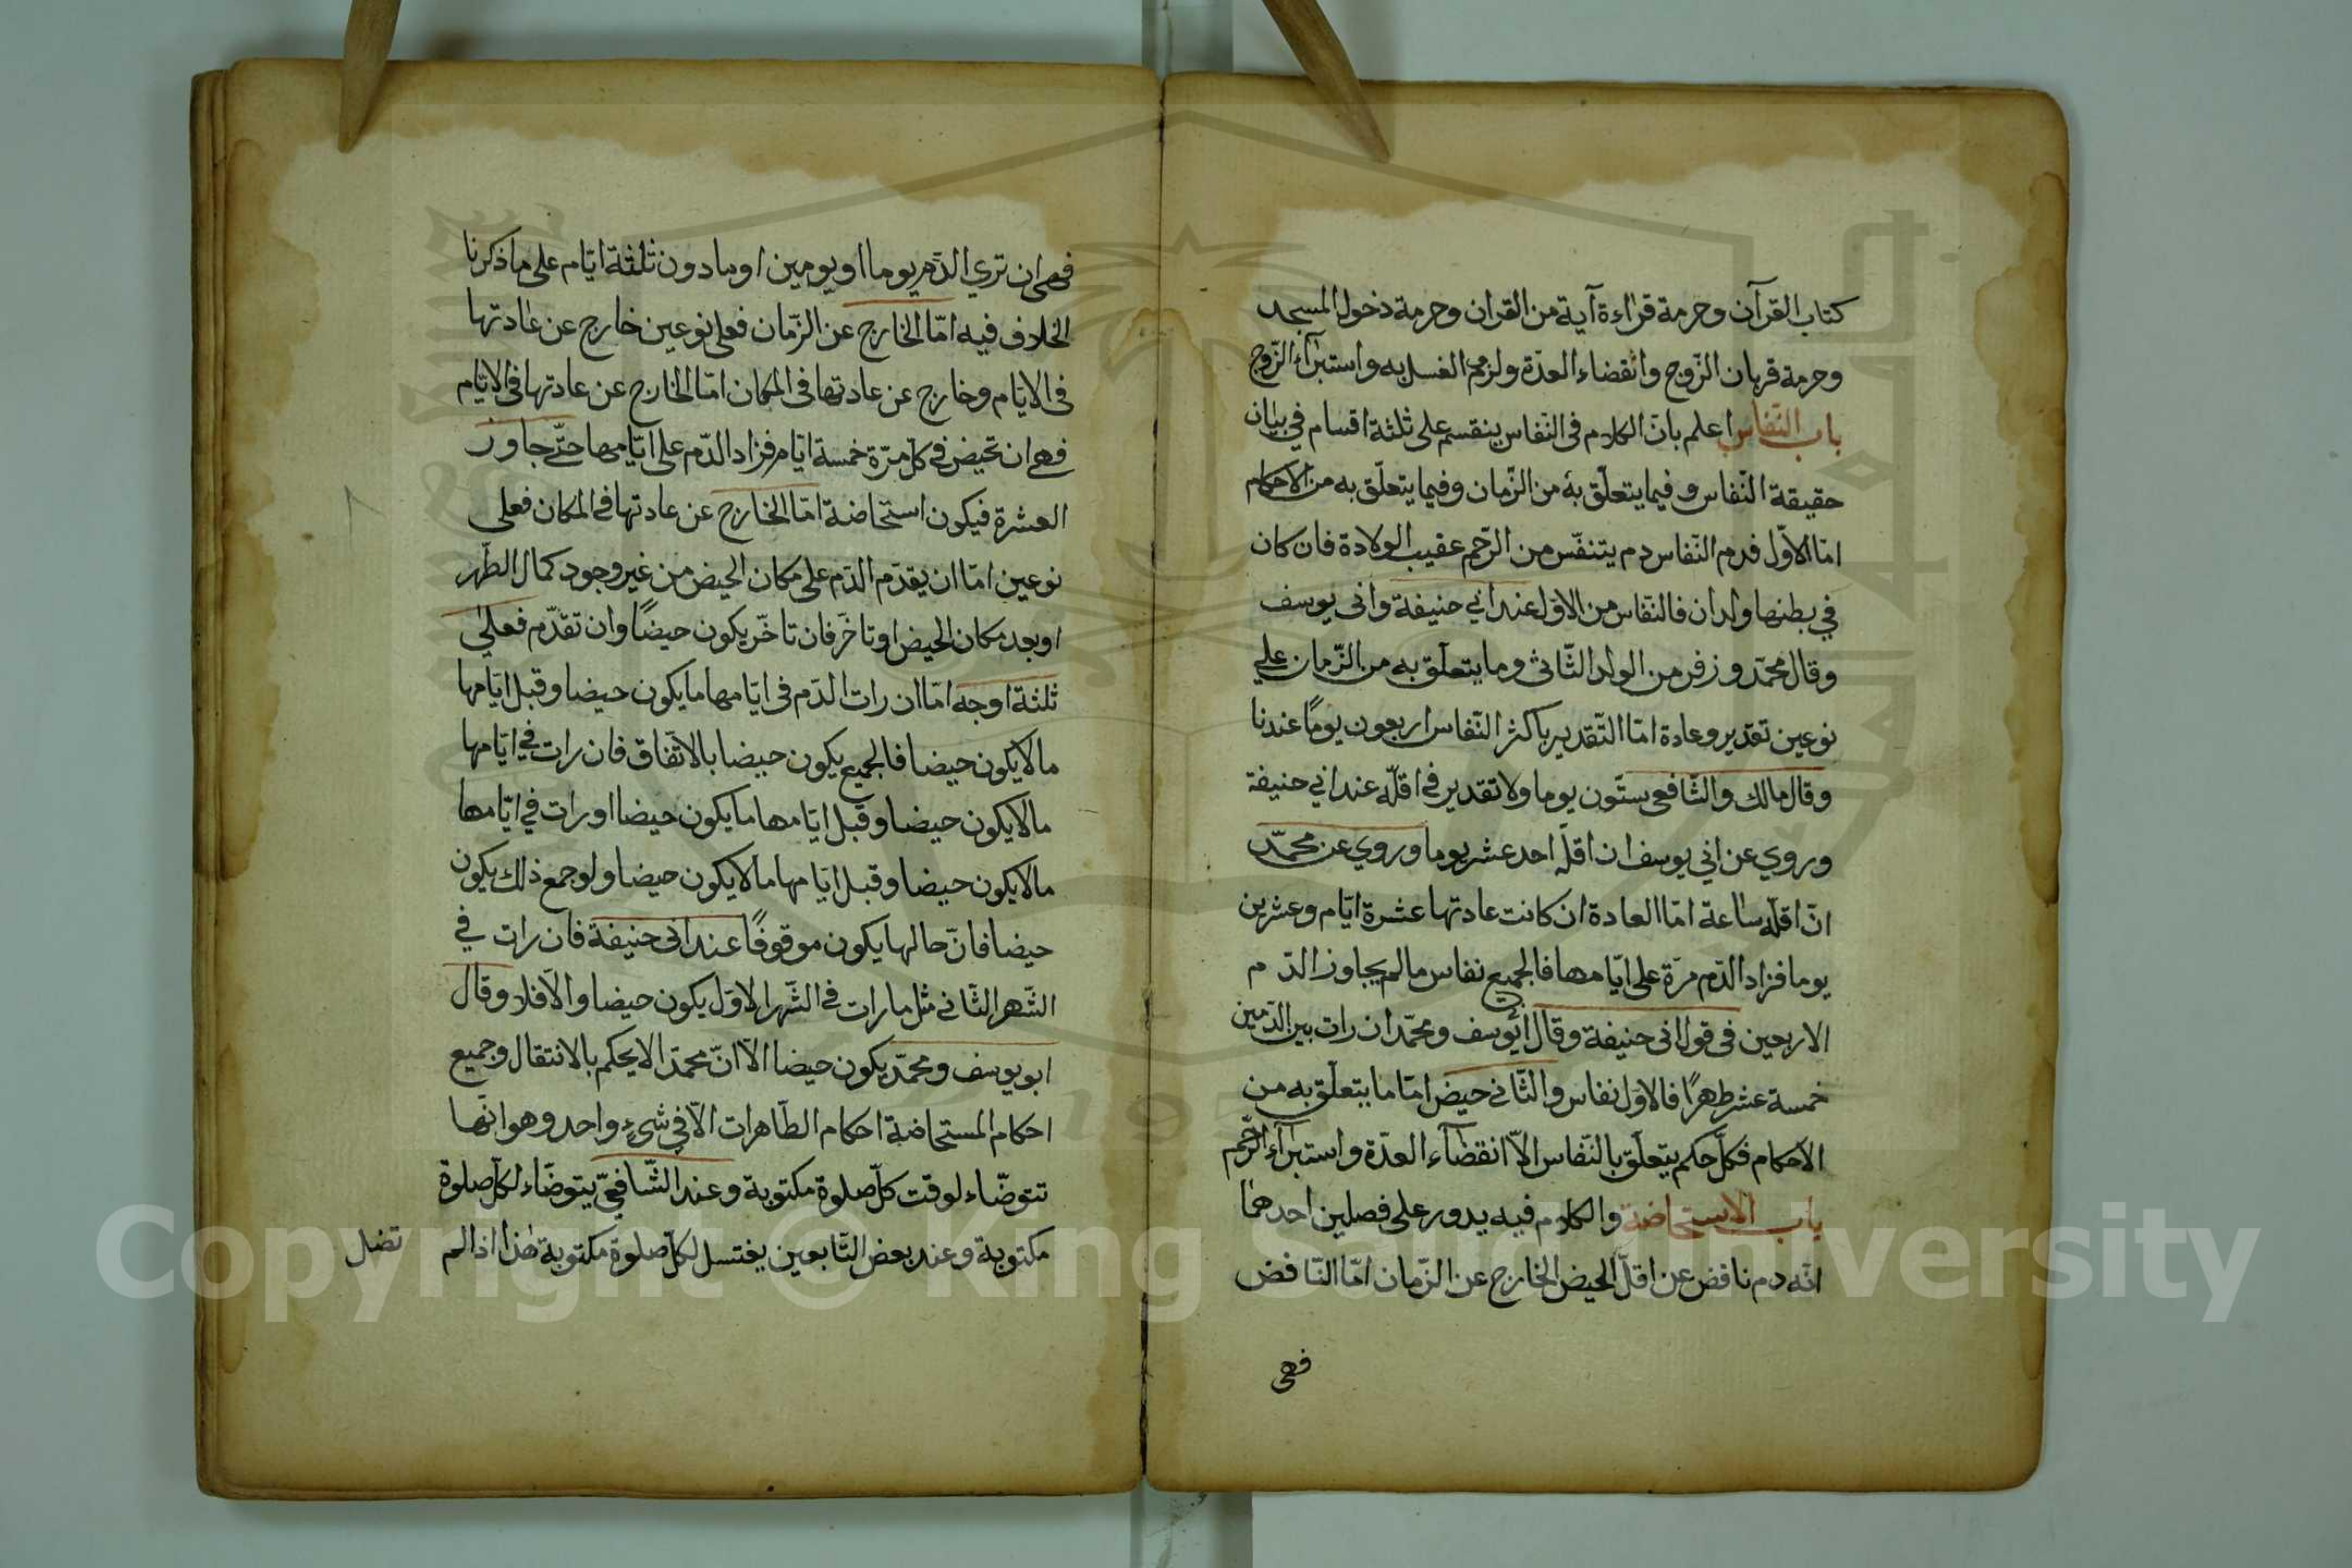 كتاب القرآن وحرمة قراءة آية من القران وحرمة دخول المسجد
وحرمة قربان الزّوج وانقضاء العدّة ولزوم الغسل به واستبراء الزّوج
باب النّفاس اعلم بانّ الكلام فى النّفاس ينقسم على ثلثة اقسام في بيان
حقيقة النّفاس وفيما يتعلّق به من الزّمان وفيما يتعلّق به من الاحكام
امّا الاوّل فدم النّفاس دم يتنفّس من الرّحم عقيب الولادة فان كان
في بطنها ولدان فالنّفاس من الاوّل عند ابي حنيفة وابى يوسف
وقال محمّد وزفر من الولد الثّانى وما يتعلّق به من الزّمان علي
نوعين تقدير وعادة امّا التّقدير باكثر النّفاس اربعون يومًا عندنا
وقال مالك والشّافعى ستّون يوما ولا تقدير في اقلّه عند ابي حنيفة
وروي عن ابي يوسف ان اقلّه احد عشر يوما وروي عن محمّد
انّ اقلّه ساعة امّا العادة ان كانت عادتها عشرة ايّام وعشرين
يوما فزاد الدّم مرّة على ايّامها فالجميع نفاس ما لم يجاوز الدّم
الاربعين فى قول ابى حنيفة وقال ابويوسف ومحمّد ان رات بين الدّمين
خمسة عشر طهرًا فالاوّل نفاس والثّانى حيض امّا ما يتعلّق به من
الاحكام فكلّ حكم يتعلّق بالنّفاس الاّ انقضآء العدّة واستبرآء الرّحم
باب الاستحاضة والكلام فيه يدور على فصلين احدهما
انّه دم ناقص عن اقلّ الحيض الخارج عن الزّمان امّا النّاقص
فهى
فهى ان تري الدّم يوما او يومين او ما دون ثلثة ايّام على ما ذكرنا
الخلاف فيه امّا الخارج عن الزّمان فعلى نوعين خارج عن عادتها
فى الايّام وخارج عن عادتها فى المكان امّا الخارج عن عادتها فى الايّام
فهى ان تحيض في كلّ مرّة خمسة ايّام فزاد الدّم على ايّامها حتّى جاور
العشرة فيكون استحاضة امّا الخارج عن عادتها فى المكان فعلى
نوعين امّا ان يقدّم الدّم على مكان الحيض من غير وجود كمال الطّهر
او بعد مكان الحيض او تاخّر فان تاخّر يكون حيضًا وان تقدّم فعلى
ثلثة اوجه امّا ان رات الدّم فى ايّامها ما يكون حيضا وقبل ايّامها
ما لا يكون حيضا فالجميع يكون حيضا بالاتّفاق فان رات في ايّامها
ما لا يكون حيضا وقبل ايّامها ما يكون حيضا او رات في ايّامها
ما لا يكون حيضا وقبل ايّامها ما لا يكون حيضا ولو جمع ذلك يكون
حيضا فانّ حالها يكون موقوفًا عند ابى حنيفة فان رات في
الشّهر الثّانى مثل ما رات فى الشّهر الاوّل يكون حيضا والاّ فلا وقال
ابو يوسف ومحمّد يكون حيضا الاّ انّ محمّد الا يحكم بالانتقال وجميع
احكام المستحاضة احكام الطّاهرات الاّ في شيء واحد وهو انّها
تتوضّاء لوقت كلّ صلوة مكتوبة وعند الشّافعيّ يتوضّاء لكلّ صلوة
مكتوبة وعند بعض التّابعين يغتسل لكلّ صلوة مكتوبة هذا اذا لم
تضل
Copyright © King Saud University